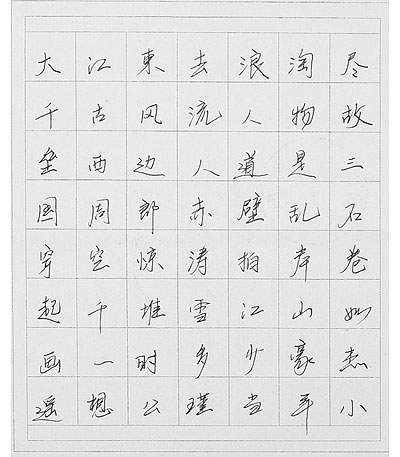 大江東去浪淘尽
千古风流人物故
垒西边人道是三
国周郎赤壁乱石
穿空惊涛拍岸卷
起千堆雪江山如
画一时多少豪杰
遥想公瑾当年小